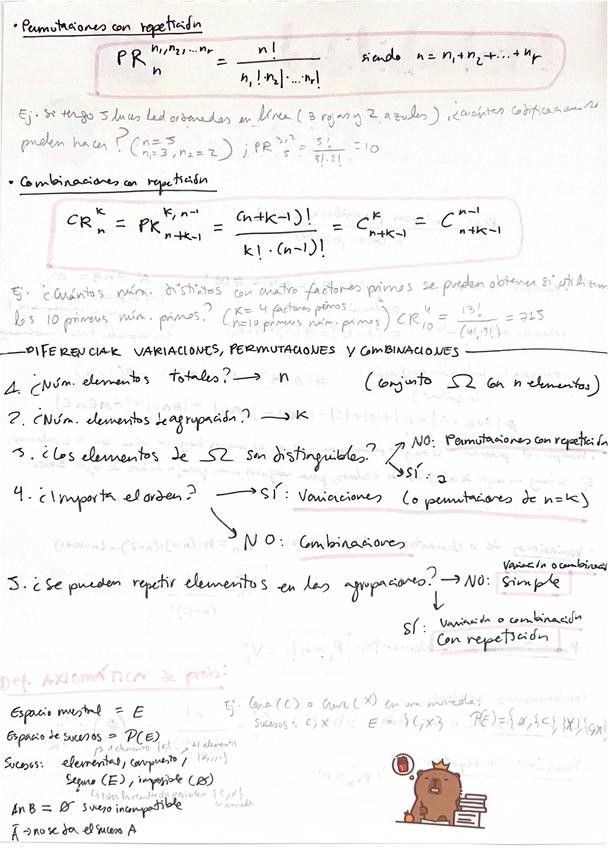 • Permutaciones con repetición
PR_n^{n₁,n₂,...nᵣ} = n! / (n₁!·n₂!·...·nᵣ!) siendo n = n₁+n₂+...+nᵣ
Ej. Si tengo 5 luces led ordenadas en línea (3 rojas y 2 azules), ¿cuántas codificaciones se
pueden hacer? (n=5 n₁=3, n₂=2) ; PR_5^{3,2} = 5!/(3!·2!) = 10
• Combinaciones con repetición
CR_n^k = PR_{n+k-1}^{k,n-1} = (n+k-1)! / (k!·(n-1)!) = C_{n+k-1}^k = C_{n+k-1}^{n-1}
Ej. ¿Cuántos núm. distintos con cuatro factores primos se pueden obtener si utilizan
los 10 primeros núm. primos? (k=4 factores primos n=10 primeros núm. primos) CR_10^4 = 13!/(4!·9!) = 715
DIFERENCIAR VARIACIONES, PERMUTACIONES Y COMBINACIONES
1. ¿Núm. elementos totales? → n (conjunto Ω con n elementos)
2. ¿Núm. elementos de agrupación? → k
3. ¿Los elementos de Ω son distinguibles? NO: Permutaciones con repetición
SÍ: 2
4. ¿Importa el orden? → SÍ: Variaciones (o permutaciones de n=k)
NO: Combinaciones
5. ¿Se pueden repetir elementos en las agrupaciones? → NO: Variación o combinación simple
SÍ: Variación o combinación
con repetición
Def. AXIOMÁTICA de prob:
Espacio muestral = E
Ej. Cara (C) o Cruz (X) en una moneda:
Sucesos: C, X E = {C,X} P(E)={∅,{C},{X},{C,X}}
Espacio de sucesos = P(E)
Sucesos: elemental, compuesto,
seguro (E), imposible (∅)
A∩B = ∅ suceso incompatible
Ā → no se da el suceso A